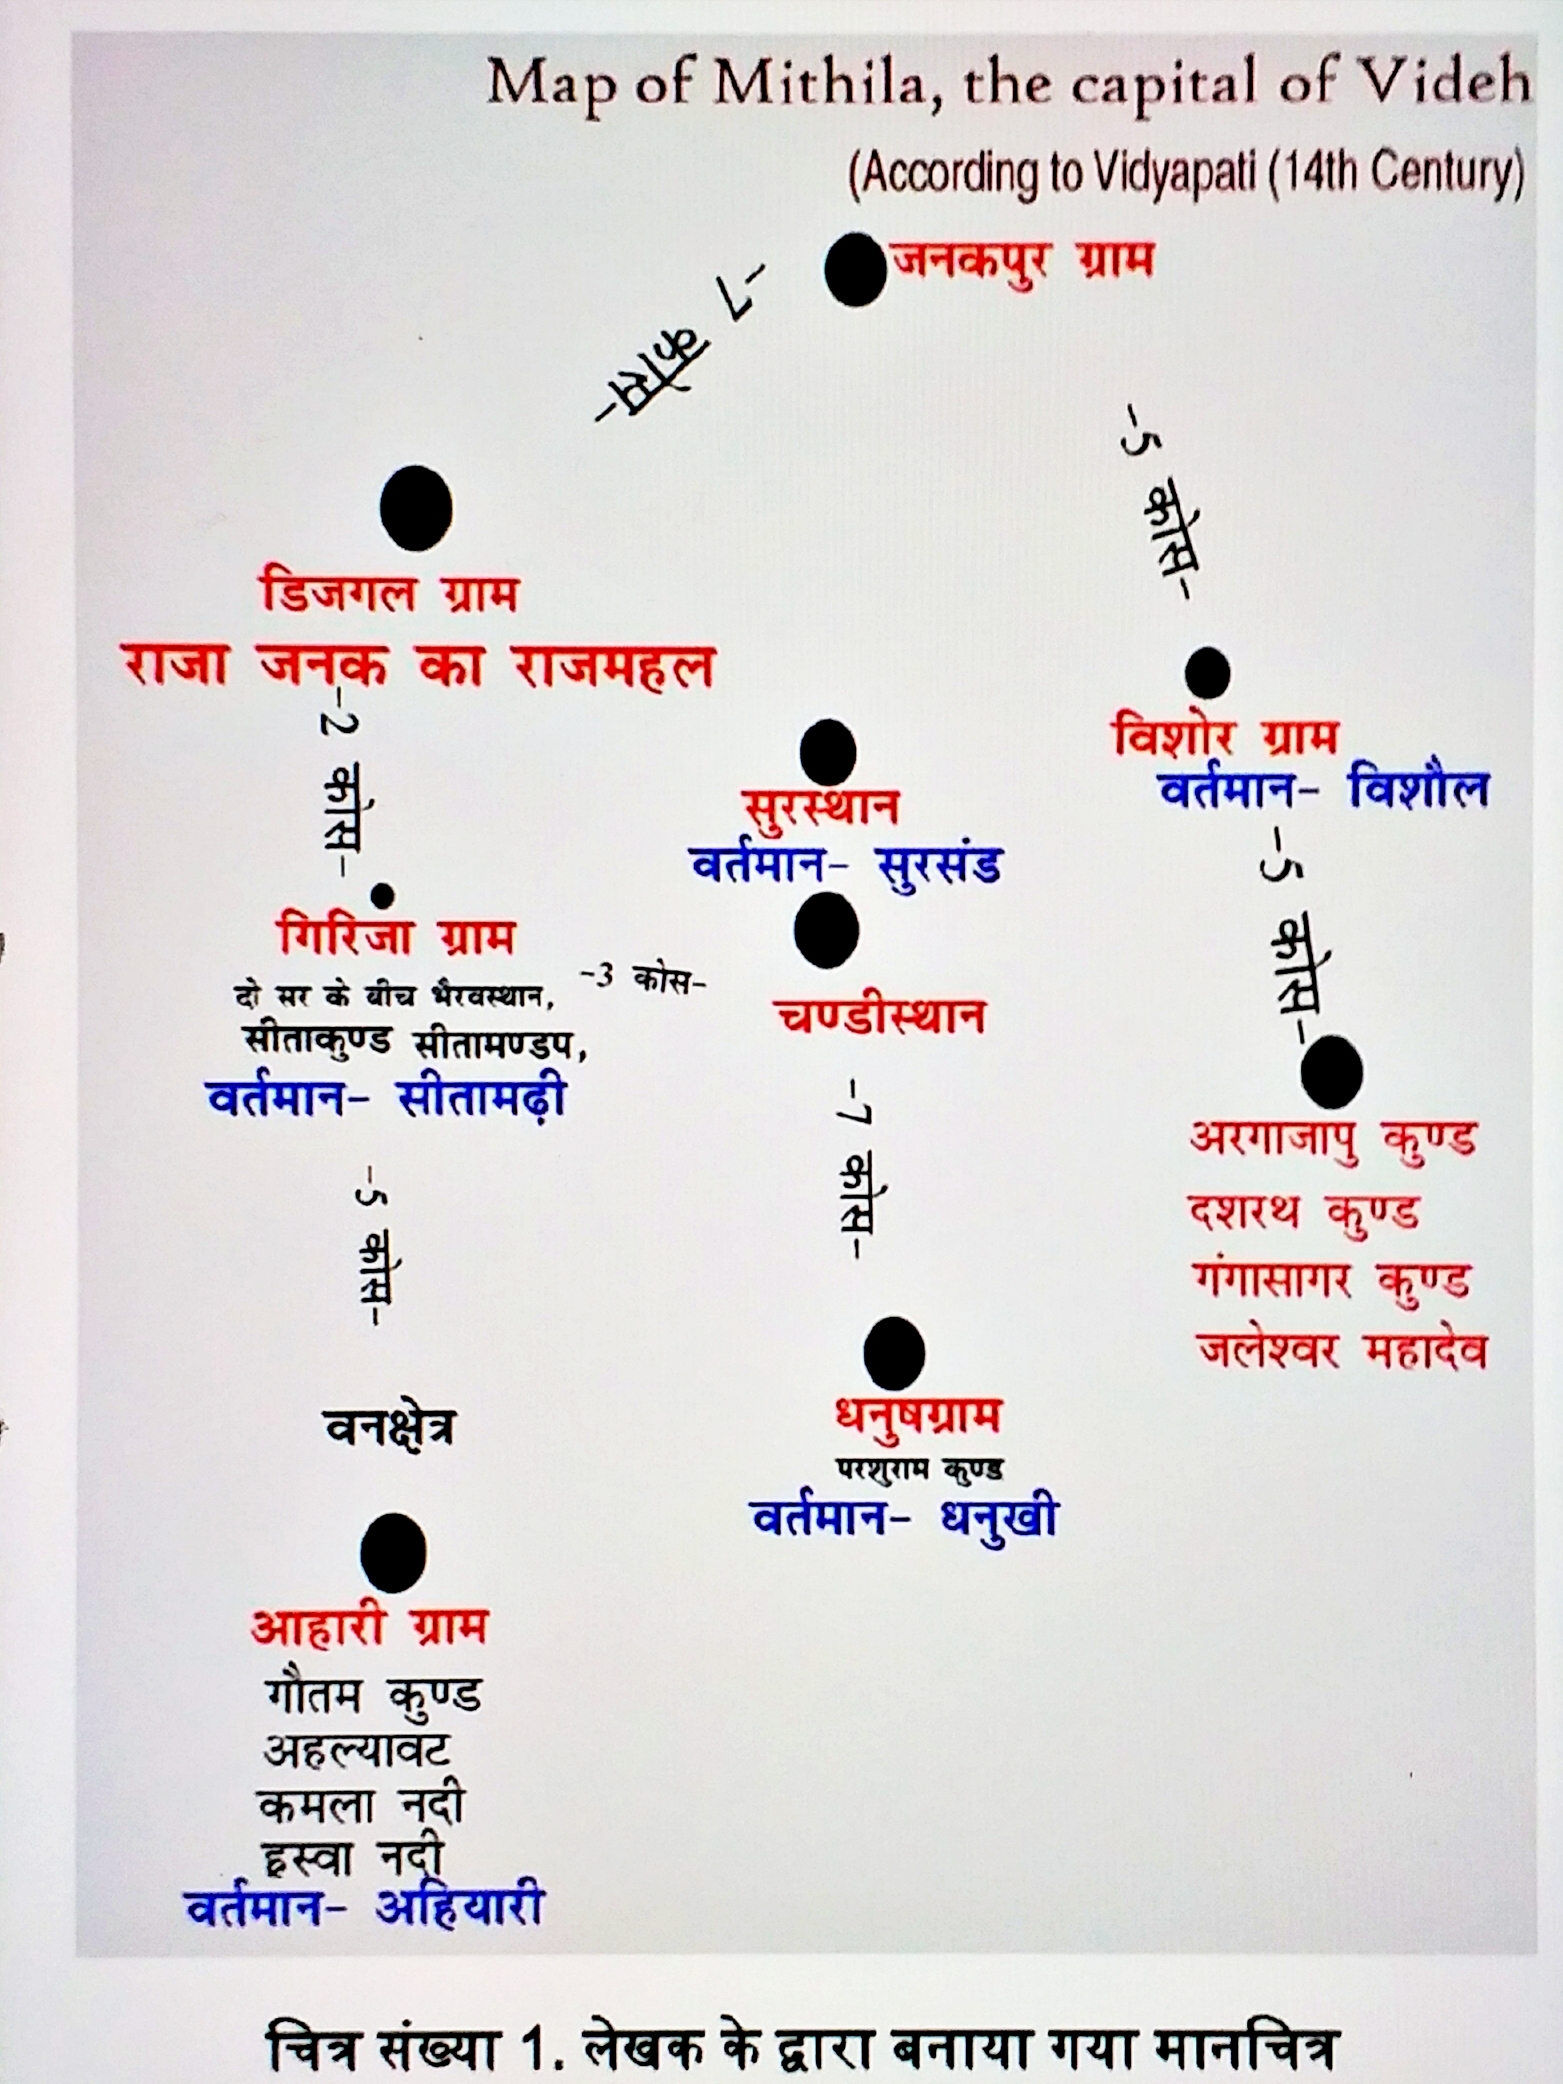 Map of Mithila, the capital of Videh
(According to Vidyapati (14th Century)
जनकपुर ग्राम
-7 कोस-
-5 कोस-
डिजगल ग्राम
राजा जनक का राजमहल
-2 कोस-
विशोर ग्राम
वर्तमान- विशौल
सुरस्थान
वर्तमान- सुरसंड
-5 कोस-
गिरिजा ग्राम
दो सर के बीच भैरवस्थान,
-3 कोस-
सीताकुण्ड सीतामण्डप,
वर्तमान- सीतामढ़ी
चण्डीस्थान
-7 कोस-
अरगाजापु कुण्ड
दशरथ कुण्ड
गंगासागर कुण्ड
जलेश्वर महादेव
-5 कोस-
वनक्षेत्र
धनुषग्राम
परशुराम कुण्ड
वर्तमान- धनुखी
आहारी ग्राम
गौतम कुण्ड
अहल्यावट
कमला नदी
इस्वा नदी
वर्तमान- अहियारी
चित्र संख्या 1. लेखक के द्वारा बनाया गया मानचित्र